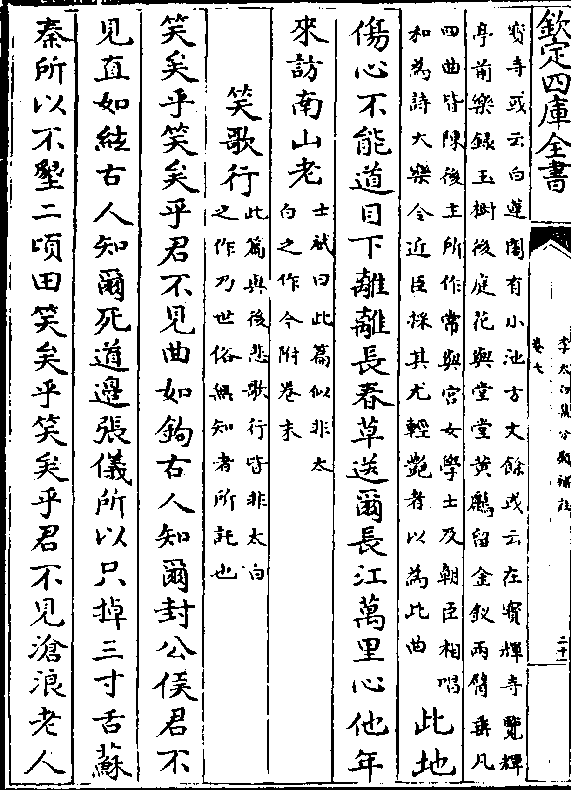 欽定四庫全書
李太白集分類補註
卷七
二十一
寶寺或云白蓮閣有小池方丈餘或云在寳輝寺覽輝
亭前樂錄玉樹後庭花與堂堂黄鸝留金釵兩臂垂凡
四曲皆陳後主所作常與宫女學士及朝臣相唱
和為詩大樂令近臣採其尤輕艷者以為此曲
此地
傷心不能道目下離離長春草送爾長江萬里心他年
來訪南山老
士贇曰此篇似非太
白之作今附卷末
笑歌行
此篇與後悲歌行皆非太白
之作乃世俗無知者所託也
笑矣乎笑矣乎君不見曲如鉤古人知爾封公侯君不
見直如絃古人知爾死道邊張儀所以只掉三寸舌蘇
秦所以不墾二頃田笑矣乎笑矣乎君不見滄浪老人